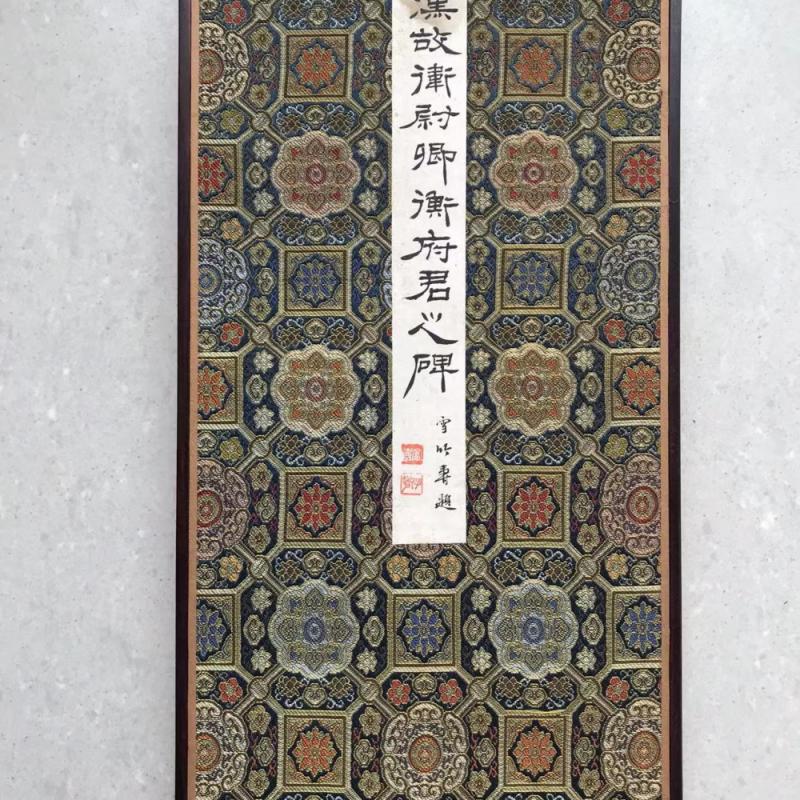 漢故衛尉卿衡府君之碑
雪竹齋題